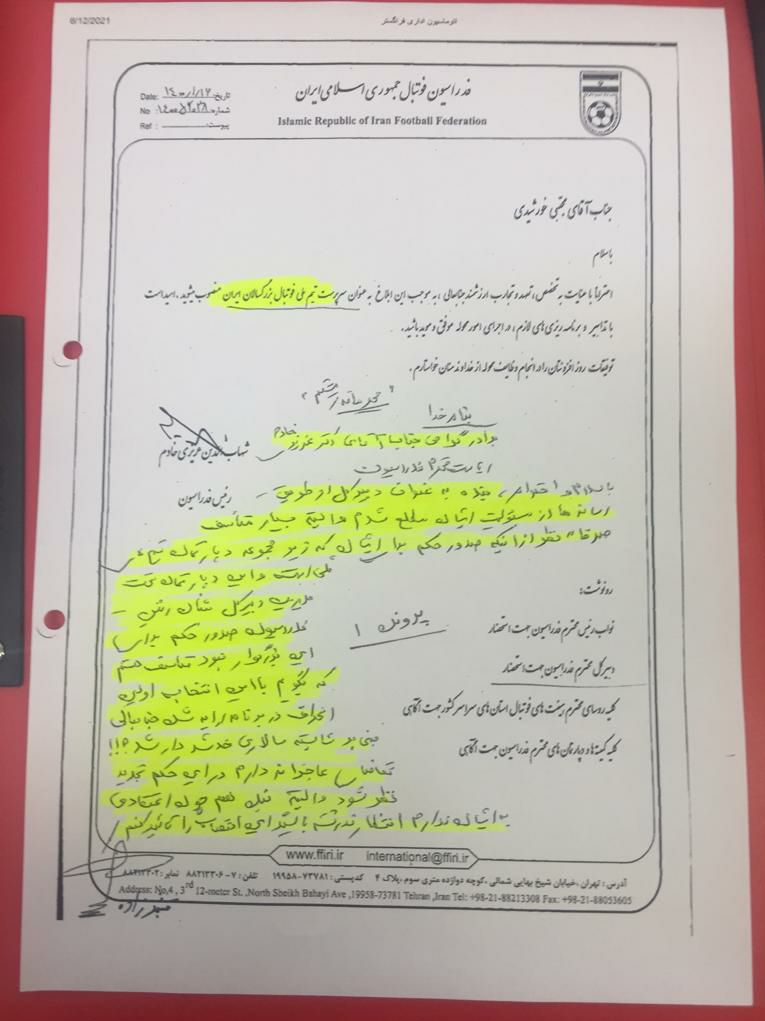 6/12/2021
اتوماسیون اداری فرانگستر
Date: تاریخ: ۱۴۰۰/۱/۱۶
No شماره:
Ref : پیوست:
فدراسیون فوتبال جمهوری اسلامی ایران
Islamic Republic of Iran Football Federation
جناب آقای مجتبی خورشیدی
باسلام
احتراماً با عنایت به تخصص، تعهد و تجارب ارزشمند جنابعالی، به موجب این ابلاغ به عنوان سرپرست تیم ملی فوتبال بزرگسالان ایران منصوب میشوید. امید است
با تدابیر و برنامه ریزی های لازم، در اجرای امور محوله موفق و موید باشید.
توفیقات روز افزونتان را در انجام وظایف محوله از خداوند منان خواستارم.
"محرمانه مستقیم"
بنام خدا
برادر گرامی جناب آقای دکتر عزیزی خادم
ریاست محترم فدراسیون
شهاب الدین عزیزی خادم
رئیس فدراسیون
با سلام و احترام، بنده به عنوان دبیرکل از طریق
رسانه ها از مسئولیت ایشان مطلع شدم و البته بسیار متأسف
صرفاً نظر از اینکه صدور حکم برای ایشان که زیر مجموعه دپارتمان تیم
ملی است و این دپارتمان تحت
مدیریت دبیرکل
فدراسیون صدور حکم برای
این بزرگوار نبود متاسف هستم
که بگویم با این انتخاب اولین
انحراف در برنامه ارایه شده جنابعالی
مبنی بر شایسته سالاری خدشه دار شد؟!!!
تقاضای عاجزانه دارم در این حکم تجدید
نظر شود و البته
به ایشان ندارم انتظار نداشته باشید این انتصاب را تائید کنم
پرونده ۱
رونوشت:
نواب رئیس محترم فدراسیون جهت استحضار
دبیرکل محترم فدراسیون جهت استحضار
کلیه روسای محترم هیئت های فوتبال استان های سراسر کشور جهت آگاهی
کلیه کمیته ها و دپارتمان های محترم فدراسیون جهت آگاهی
www.ffiri.ir international@ffiri.ir
آدرس: تهران، خیابان شیخ بهایی شمالی، کوچه دوازده متری سوم، پلاک ۴ کدپستی: ۷۳۷۸۱-۱۹۹۵۸ تلفن: ۷-۸۸۲۱۳۳۰۶ نمابر: ۸۸۲۱۳۳۰۲
Address: No,4 , 3rd 12-meter St. ,North Sheikh Bahayi Ave ,19958-73781 Tehran ,Iran Tel: +98-21-88213308 Fax: +98-21-88053605